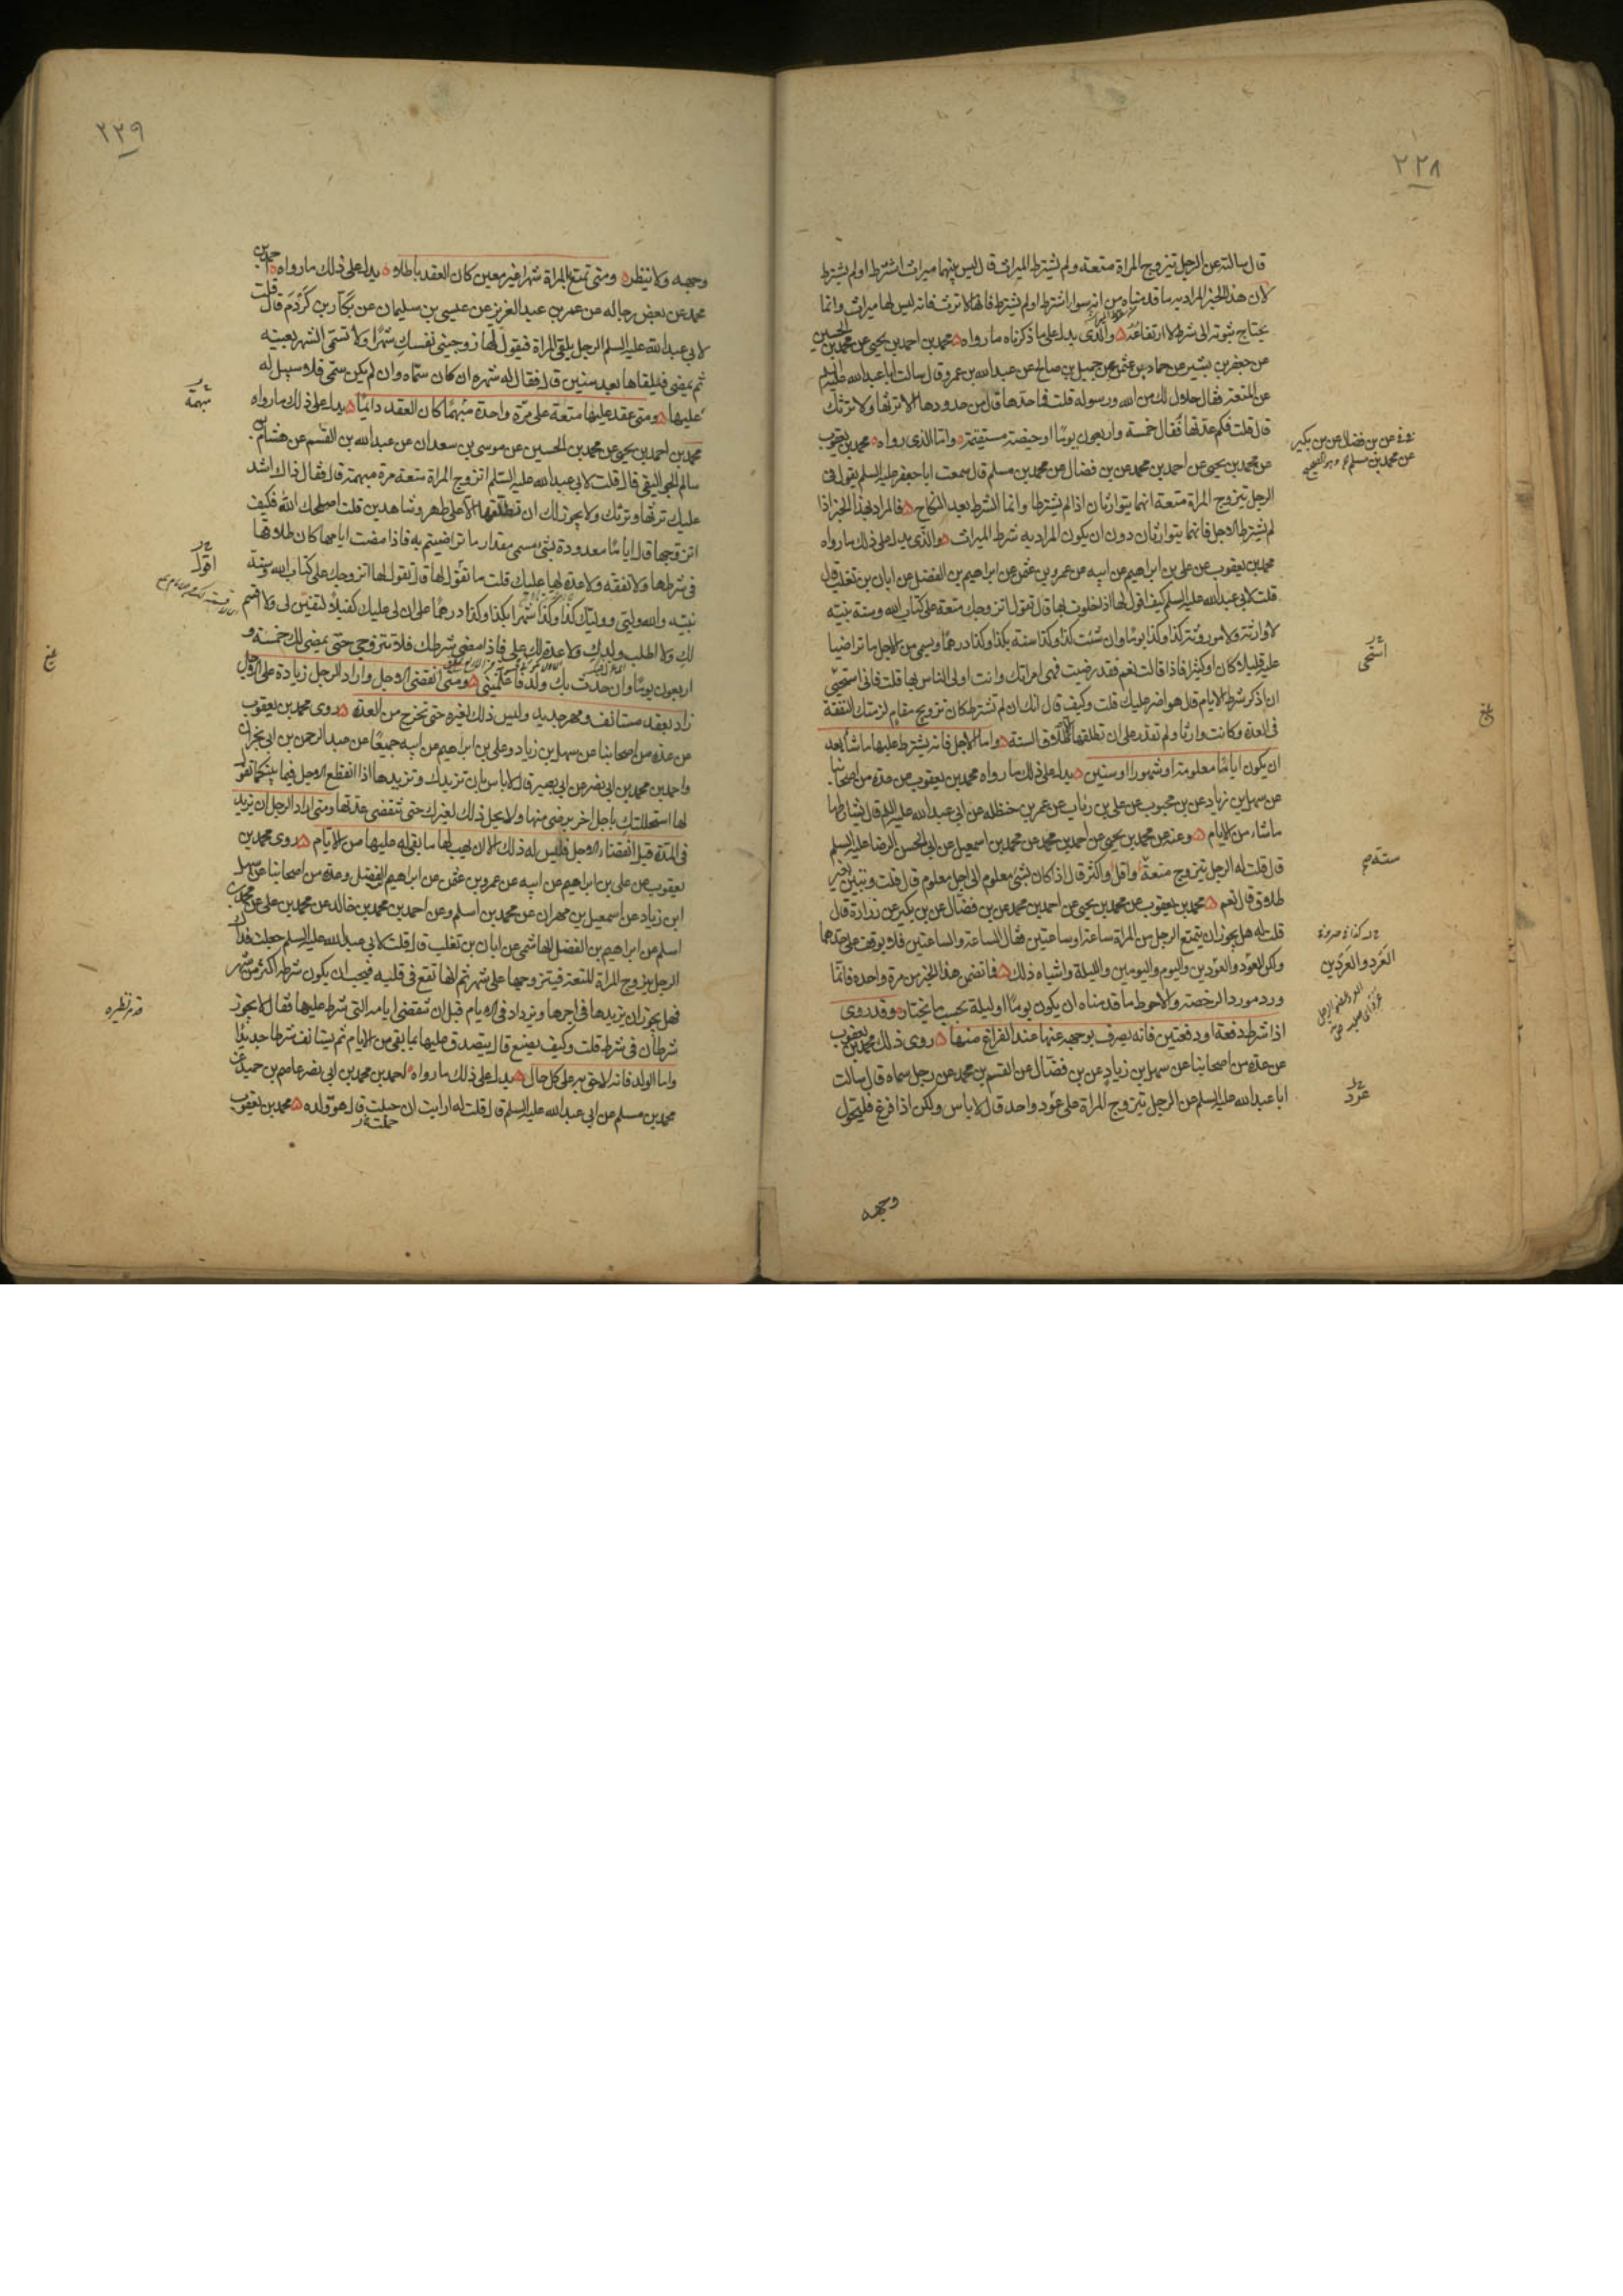 ٢٢٨
قال سالته عن الرجل يتزوج المراة متعة ولم يشترط الميراث قال ليس بينهما ميراث اشترط او لم يشترط
لان هذا الخبر المراد به ما قدمناه من انه سواء اشترط او لم يشترط فانها لا ترث فانه ليس لها ميراث وانما
يحتاج ثبوته الى شرط لا ارتفاعه والذى يدل على ما ذكرناه ما رواه محمد بن احمد بن يحيى عن محمد بن الحسين
عن جعفر بن بشير عن حماد بن عثمن عن جميل بن صالح عن عبدالله بن عمرو قال سالت ابا عبدالله عليه السلم
عن المتعة فقال حلال لك من الله ورسوله قلت فما حدها قال من حدودها الا ترثها ولا ترثك
قال قلت فكم عدتها فقال خمسة واربعون يوما او حيضة مستقيمة واما الذى رواه محمد بن يعقوب
عن محمد بن يحيى عن احمد بن محمد عن بن فضال عن محمد بن مسلم قال سمعت ابا جعفر عليه السلم يقول فى
الرجل يتزوج المراة متعة انهما يتوارثان اذا لم يشترطا وانما الشرط بعد النكاح فالمراد بهذا الخبر اذا
لم يشترطا الاجل فانهما يتوارثان دون ان يكون المراد به شرط الميراث والذى يدل على ذلك ما رواه
محمد بن يعقوب عن على بن ابراهيم عن ابيه عن عمرو بن عثمن عن ابراهيم بن الفضل عن ابان بن تغلب قال
قلت لابى عبدالله عليه السلم كيف اقول لها اذا خلوت بها قال تقول اتزوجك متعة على كتاب الله وسنة نبيه
لا وارثة ولا موروثة كذا وكذا يوما وان شئت كذا وكذا سنة بكذا وكذا درهما ويسمى من الاجل ما تراضيا
عليه قليلا كان او كثيرا فاذا قالت نعم فقد رضيت فهى امراتك وانت اولى الناس بها قلت فانى استحيى
ان اذكر شرط الايام قال هو اضر عليك قلت وكيف قال انك ان لم تشترط كان تزويج مقام لزمتك النفقة
فى العدة وكانت وارثا ولم تقدر على ان تطلقها الا طلاق السنة واما الاجل فانه يشترط عليها ما شاء بعد
ان يكون اياما معلومة او شهورا او سنين يدل على ذلك ما رواه محمد بن يعقوب عن عدة من اصحابنا
عن سهل بن زياد عن بن محبوب عن على بن رئاب عن عمر بن حنظله عن ابى عبدالله عليه السلم قال يشارطها
ما شاء من الايام وعنه عن محمد بن يحيى عن احمد بن محمد عن محمد بن اسمعيل عن ابى الحسن الرضا عليه السلم
قال قلت له الرجل يتزوج متعة او اقل واكثر قال اذا كان بشئ معلوم الى اجل معلوم قال قلت وتبين بغير
طلاق قال نعم محمد بن يعقوب عن محمد بن يحيى عن احمد بن محمد عن بن فضال عن بن بكير عن زرارة قال
قلت له هل يجوز ان يتمتع الرجل من المراة ساعة او ساعتين فقال الساعة والساعتين فلا يوقف على حدهما
ولكن العود والعودين واليوم واليومين والليلة واشباه ذلك فما تضمن هذا الخبر من مرة واحده فانما
ورد مورد الرخصة والاحوط ما قدمناه ان يكون يوما او ليلة بحسب ما يختار وقد روى
اذا شرط دفعة او دفعتين فانه يصرف بوجهه عنها عند الفراغ منها روى ذلك محمد بن يعقوب
عن عدة من اصحابنا عن سهل بن زياد عن بن فضال عن القسم بن محمد عن رجل سماه قال سالت
ابا عبدالله عليه السلم عن الرجل يتزوج المراة على عود واحد قال لا باس ولكن اذا فرغ فليحول
وجهه
عن بن فضال عن بن بكير
عن محمد بن مسلم
استحى
سنة
العرد والعردين
عرد
٢٢٩
وجهه ولا ينظر ومتى تمتع بالمراة شهرا غير معين كان العقد باطلا يدل على ذلك ما رواه احمد بن
محمد عن بعض رجاله عن عمر بن عبد العزيز عن عيسى بن سليمان عن بكار بن كردم قال قلت
لابى عبدالله عليه السلم الرجل يلقى المراة فيقول لها زوجينى نفسك شهرا ولا تسمى الشهر بعينه
ثم يمضى فيلقاها بعد سنين قال فقال له شهره ان كان سماه وان لم يكن سمى فلا سبيل له
عليها ومتى عقد عليها متعة على مرة واحدة مبهما كان العقد دائما يدل على ذلك ما رواه
محمد بن احمد بن يحيى عن محمد بن الحسين عن موسى بن سعدان عن عبدالله بن القسم عن هشام بن
سالم الجواليقى قال قلت لابى عبدالله عليه السلم اتزوج المراة متعة مرة مبهمة قال فقال ذاك اشد
عليك ترثها وترثك ولا يجوز لك ان تطلقها الا على طهر وشاهدين قلت اصلحك الله فكيف
اتزوجها قال اياما معدودة بشئ مسمى مقدار ما تراضيتم به فاذا مضت ايامها كان طلاقها
فى شرطها ولا نفقه ولا عدة لها عليك قلت ما نقول لها قال تقول لها اتزوجك على كتاب الله وسنة
نبيه والله وليى ووليك كذا وكذا شهرا بكذا وكذا درهما على ان لى عليك كفيلا لتفين لى ولا اقسم
لك ولا اطلب ولدك ولا عدة لك على فاذا مضى شرطك فلا تتزوجى حتى يمضى لك خمسة و
اربعون يوما وان حدث بك ولد فاعلمينى ومتى انقضى الاجل واراد الرجل زيادة على الاجل
زاد بعقد مستانف ومهر جديد وليس ذلك لغيره حتى تخرج من العدة روى محمد بن يعقوب
عن عدة من اصحابنا عن سهل بن زياد وعلى بن ابراهيم عن ابيه جميعا عن عبد الرحمن بن ابى نجران
واحمد بن محمد بن ابى نصر عن ابى بصير قال لا باس بان تزيدك وتزيدها اذا انقطع الاجل فيما بينكما تقول
لها استحللتك باجل اخر برضى منها ولا يحل ذلك لغيرك حتى تنقضى عدتها ومتى اراد الرجل ان يزيد
فى المدة قبل انقضاء الاجل فليس له ذلك الا ان يهب لها ما بقى له عليها من الايام روى محمد بن
يعقوب عن على بن ابراهيم عن ابيه عن عمرو بن عثمن عن ابراهيم بن الفضل وعدة من اصحابنا عن سهل
ابن زياد عن اسمعيل بن مهران عن محمد بن اسلم وعن احمد بن محمد بن خالد عن محمد بن على عن محمد بن
اسلم عن ابراهيم بن الفضل الهاشمى عن ابان بن تغلب قال قلت لابى عبدالله عليه السلم جعلت فداك
الرجل يتزوج المراة للمتعة فيتزوجها على شهر ثم انها تقع فى قلبه فيحب ان يكون شرطه اكثر من شهر
فهل يجوز ان يزيدها فى اجرها ويزداد فى الايام قبل ان تنقضى ايامه التى شرط عليها فقال لا يجوز
شرطان فى شرط قلت وكيف يصنع قال يتصدق عليها بما بقى من الايام ثم يستانف شرطا جديدا
واما الولد فانه لاحق به على كل حال يدل على ذلك ما رواه احمد بن محمد بن ابى نصر عن عاصم بن حميد عن
محمد بن مسلم عن ابى عبدالله عليه السلم قال قلت له ارايت ان حبلت قال هو ولده محمد بن يعقوب
مبهمة
اقول
قد مر نظيره